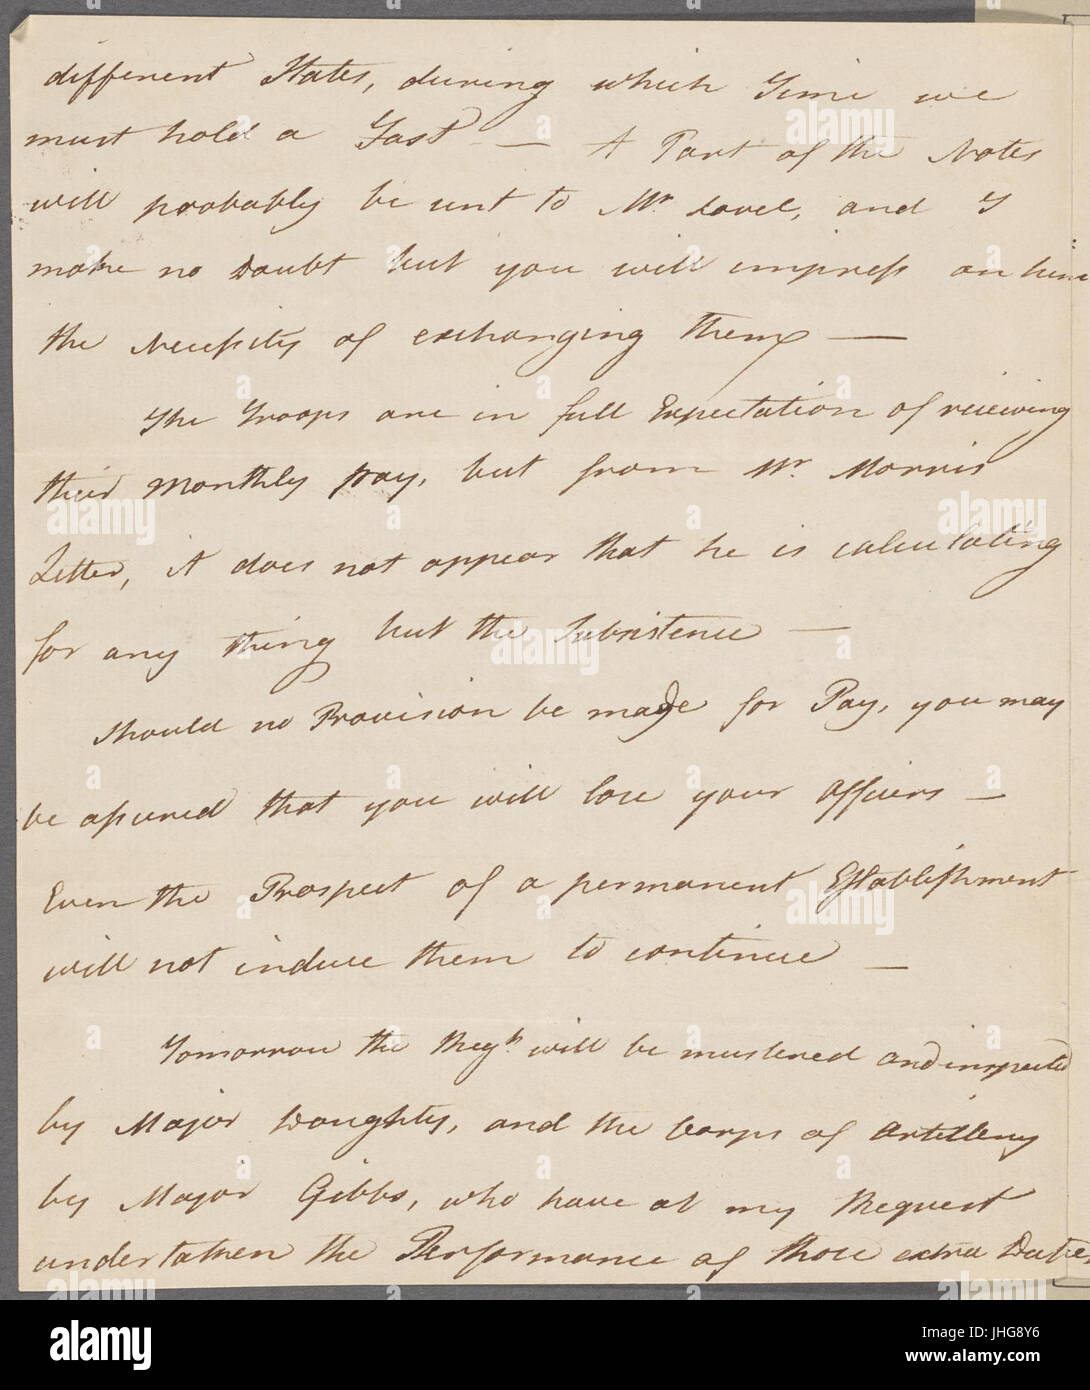 different States, during which Time we
must hold a Fast — A Part of the Notes
will probably be sent to Mr. Lovel, and I
make no Doubt but you will impress on him
the Necessity of exchanging them —
The Troops are in full Expectation of receiving
their monthly pay, but from Mr. Morris
Letter, it does not appear that he is calculating
for any thing but the Subsistence —
Should no Provision be made for Pay, you may
be assured that you will lose your Officers —
Even the Prospect of a permanent Establishment
will not induce them to continue —
Tomorrow the Regt. will be mustered and inspected
by Major Doughty, and the Corps of Artillery
by Major Gibbs, who have at my Request
undertaken the Performance of those extra Duties
alamy
Image ID: JHG8Y6
www.alamy.com